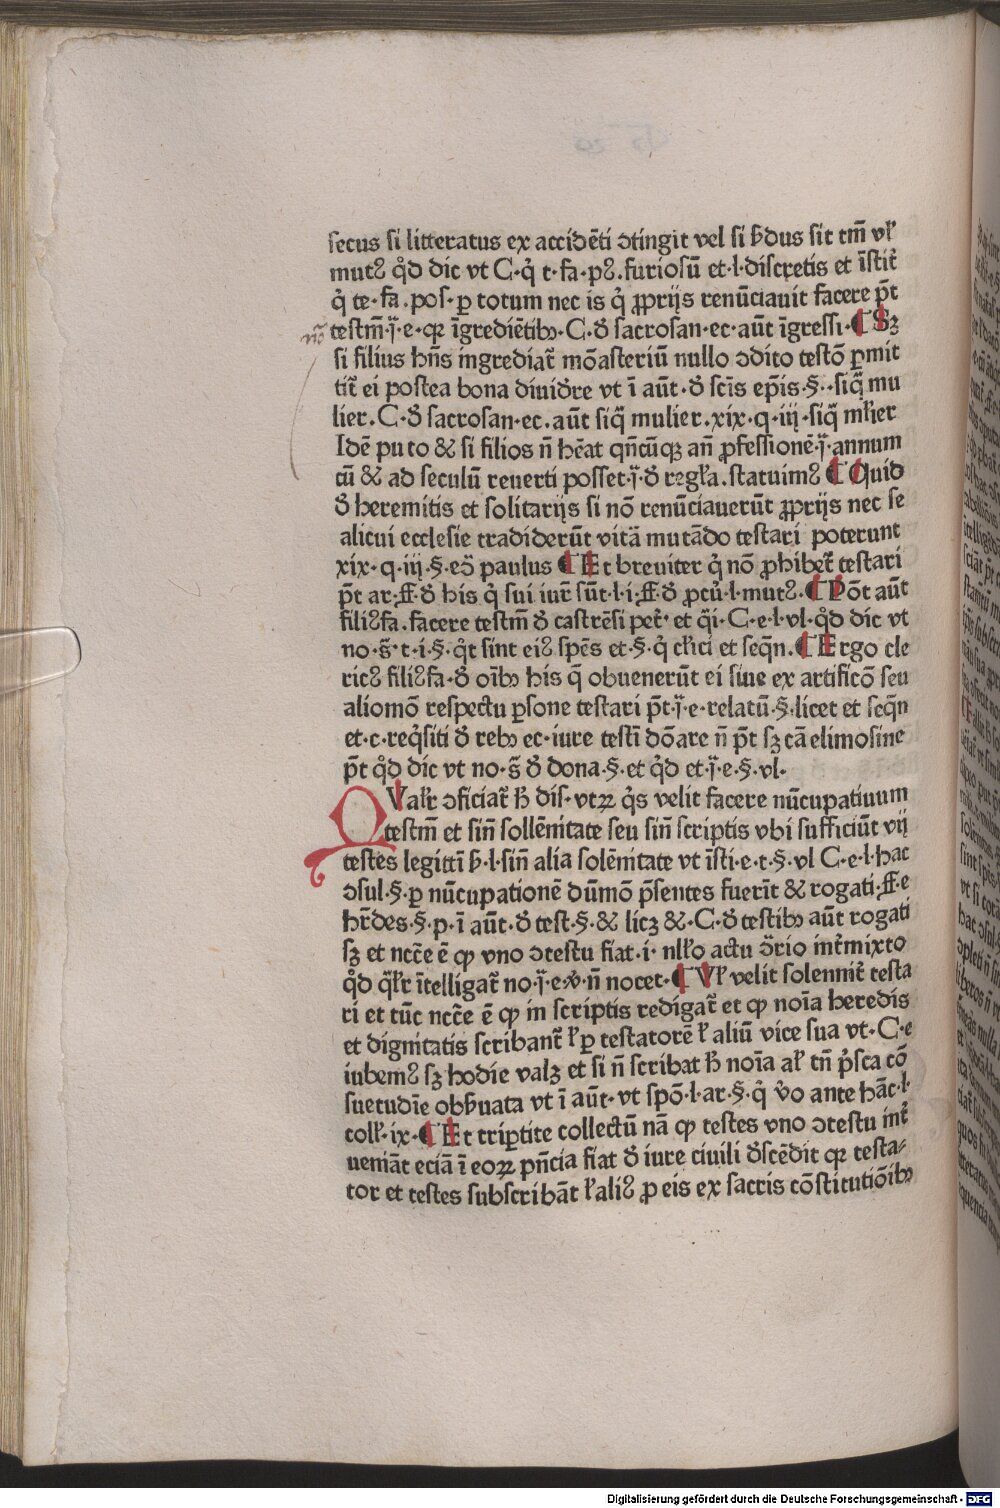 secus si litteratus ex accidēti ꝯtingit vel si ẜdus sit tm̄ vl̛
mutꝰ qd̛ dic vt C·q̇ t·fa·pꝰ.furiosū et·l·discretis et īstit̄
q̇ te·fa.pos·ꝑ totum nec is q̇ ꝓprijs renūciauit facere p̄t
nō testm̄·j̈·e·qꝛ īgrediētibꝫ·C·ꝺ̄ sacrosan·ec·aūt īgressi·¶ Sꝫ
si filius hn̄s ingrediat̄ mōasteriū nullo ꝯdito testō ꝑmit
tit̄ ei postea bona diuidre vt ī aūt·ꝺ̄ scīs ep̄is·§··siq̄ mu
lier.C·ꝺ̄ sacrosan·ec.aūt siq̄ mulier.xix·q·iij·siq̄ ml̛ier
Idē puto & si filios n̄ hēat qn̄cūqꝫ an̄ ꝓfessionē·j̈·annum
cū & ad seculū reuerti posset·j̈·ꝺ̄ regl̛a.statuimꝰ ¶ Quid
ꝺ̄ heremitis et solitarijs si nō renūciauerūt ꝓprijs nec se
alicui ecclesie tradiderūt vitā mutādo testari poterunt
xix·q·iij·§·eō paulus ¶ Et breuiter q̇ nō ꝓhibet̄ testari
p̄t ar·ff·ꝺ̄ his q̇ sui iur̄ sūt·l·i·ff·ꝺ̄ ꝓcu̇·l·mutꝰ.¶ Pōt aūt
filiꝰfa.facere testm̄ ꝺ̄ castrēsi pet̄· et q̄i·C·e·l·vl·qd̛ dic vt
no·s̄·t·i·§·q̇t sint eiꝰ sp̄es et·§·q̇ cl̛ici et seqn̄.¶ Ergo cle
ricꝰ filiꝰfa·ꝺ̄ oībꝫ his q̄ obuenerūt ei siue ex artificō seu
aliomō respectu ꝑsone testari p̄t·j̈·e·relatū·§·licet et seqn̄
et·c·req̇siti ꝺ̄ rebꝫ ec·iure testī dōare n̄ p̄t sꝫ cā elimosine
p̄t qd̛ dic vt no·s̄ ꝺ̄ dona·§·et qd̛ et·j̈·e·§·vl·
QValr̛ ꝯficiat̄ ħ dis·vtꝝ q̇s velit facere nūcupatiuum
testm̄ et sin̄ sollēnitate seu sin̄ scriptis vbi sufficiūt vij
testes legittī ẜ·l·sin̄ alia solēnitate vt īsti·e·t·§·vl C·e·l·hac
ꝯsul·§·ꝑ nūcupationē dūmō p̄sentes fuerīt & rogati·ff·e
hr̄des·§·p·ī aūt·ꝺ̄ test·§·& licꝫ &·C·ꝺ̄ testibꝫ aūt rogati
sꝫ et ncc̄e ē ꝙ vno ꝯtestu fiat·i· nll̛o actu ꝯ̄rio int̄mixto
qd̛ ql̛r ītelligat̄ no·j̈·e·v̛·n̄ nocet·¶ Vl̛ velit solennit̄ testa
ri et tūc ncc̄e ē ꝙ in scriptis redigat̄ et ꝙ noīa heredis
et dignitatis scribant̄ l̛ ꝑ testatorē l̛ aliū vice sua vt·C·e
iubemꝰ sꝫ hodie valꝫ et si n̄ scribat ħ noīa al̛ tn̄ p̓sca cō
suetudīe obẜuata vt ī aūt·vt spō·l·ar·§·q̇ v̛o ante hāc·l·
coll̛·ix·¶ Et triꝑtite collectū nā ꝙ testes vno ꝯtestu int̄
ueniāt eciā ī eoꝝ pn̄cia fiat ꝺ̄ iure ciuili ꝺ̄scēdit qꝛ testa-
tor et testes subscribāt l̛ aliꝰ ꝓ eis ex sacris cōstitutiōibꝫ
Digitalisierung gefördert durch die Deutsche Forschungsgemeinschaft - DFG